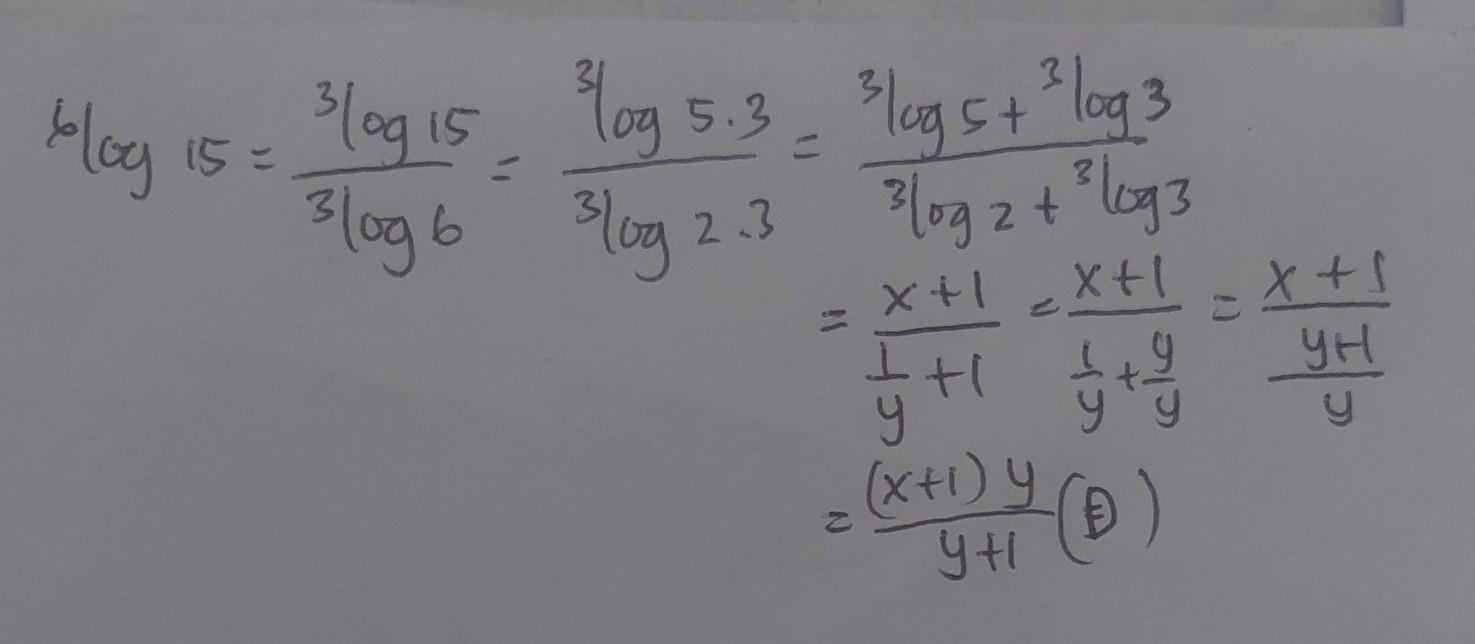 ⁶log 15 = ³log 15 / ³log 6 = ³log 5.3 / ³log 2.3 = (³log 5 + ³log 3) / (³log 2 + ³log 3)
= (x+1) / (1/y + 1) = (x+1) / (1/y + y/y) = (x+1) / ((y+1)/y)
= (x+1) y / (y+1)